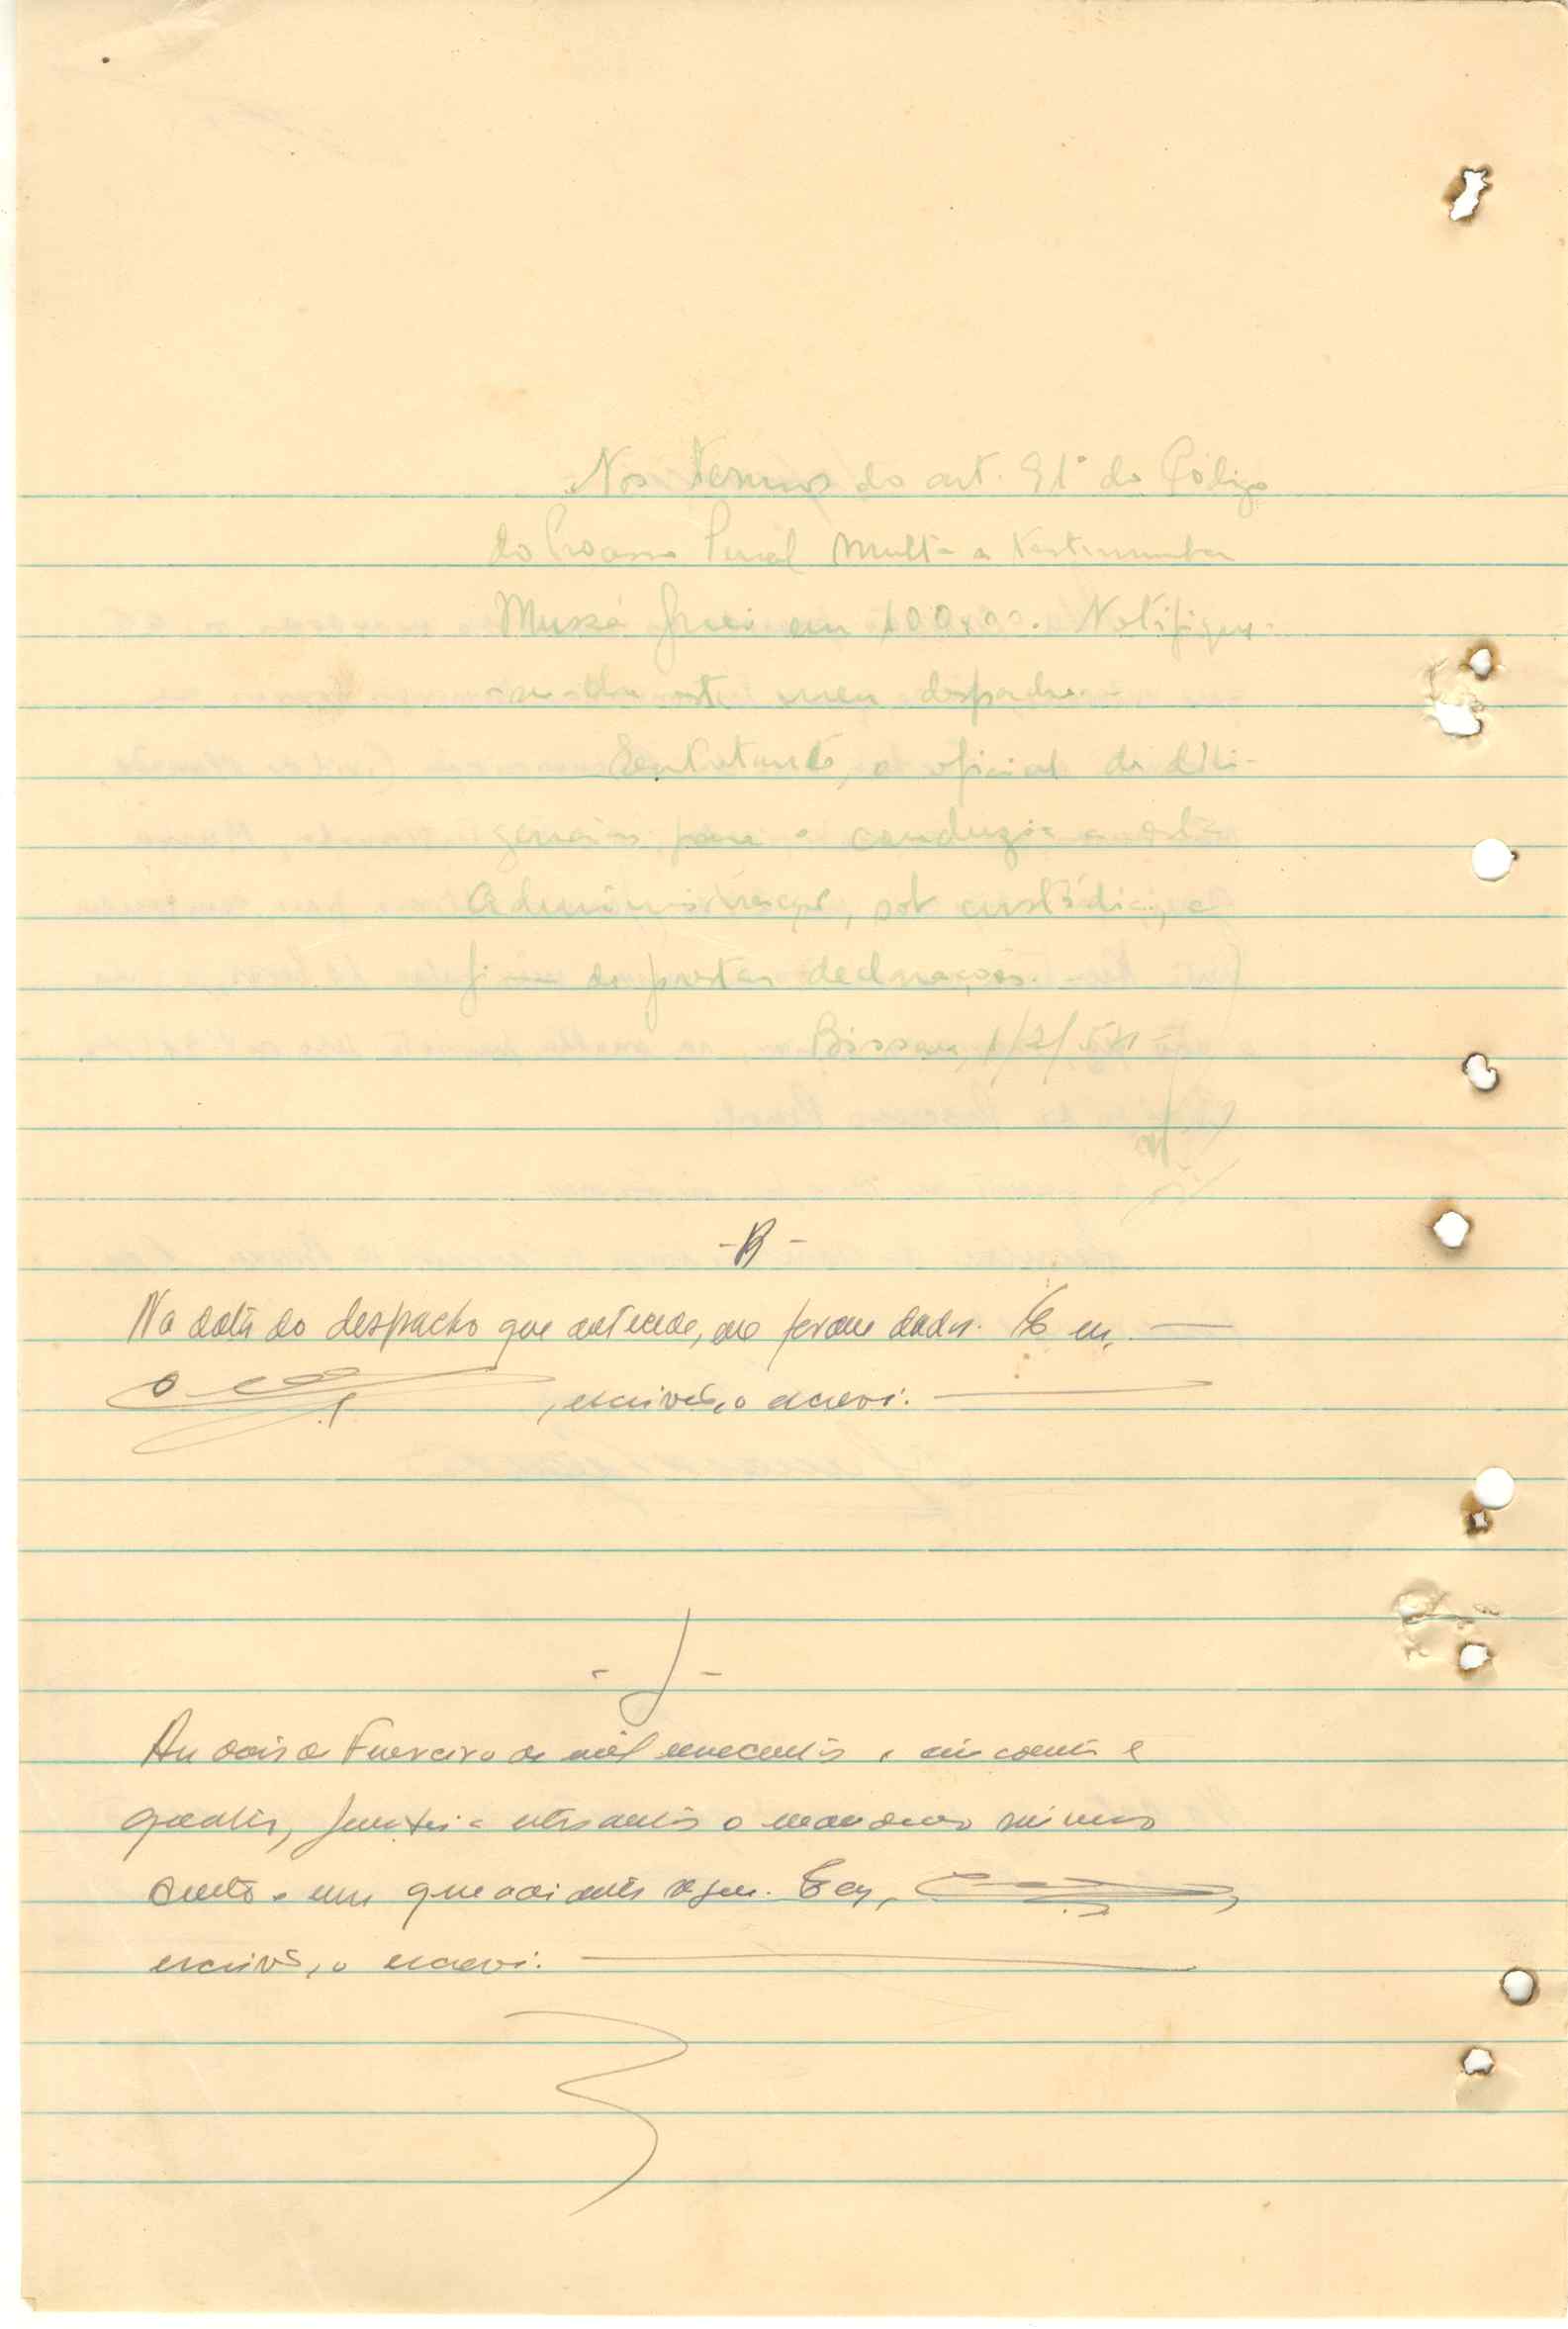 Nos termos do art. 91º do Código
do Processo Penal multo a testemunha
Mussá em 100$00. Notifique-
se-lhe este meu despacho.
Entretanto, o oficial de dili-
gencias para o conduzir a esta
Administração, sob custódia, a
fim de prestar declarações.
Bissau, 1/2/54
- R -
Na data do despacho que antecede, me foram dados. E eu,
, escrivão, o escrevi.
- J -
Aos dois de Fevereiro de mil novecentos e cincoenta e
quatro, juntei a estes autos o mandado número
cento e um que adiante segue. E eu,
escrivão, o escrevi.